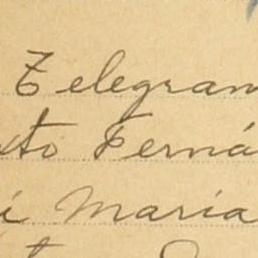 Telegram
sto Ferná
i María